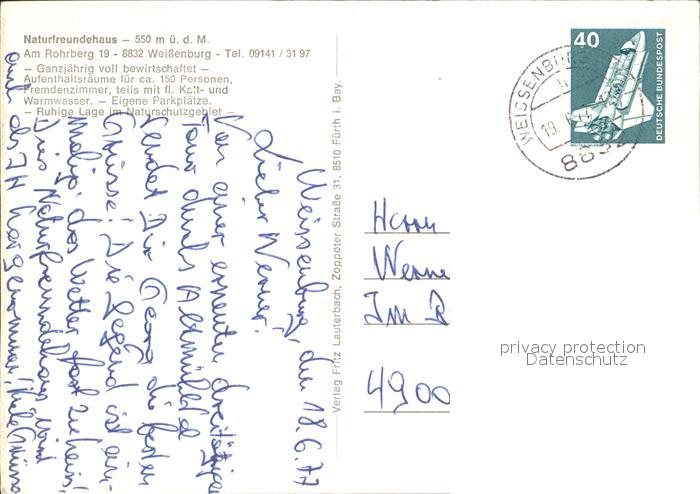 Naturfreundehaus — 550 m ü. d. M.
Am Rohrberg 19 - 8832 Weißenburg - Tel. 09141 / 31 97
— Ganzjährig voll bewirtschaftet —
Aufenthaltsräume für ca. 150 Personen,
Fremdenzimmer, teils mit fl. Kalt- und
Warmwasser. — Eigene Parkplätze.
— Ruhige Lage im Naturschutzgebiet —
Weissenburg, den 18.6.77
Lieber Werner!
Von einer erneuten dreitägigen
Tour durchs Altmühltal
sendet Dir Georg die besten
Grüsse! Die Gegend ist ein-
malig, das Wetter fast zu heiss!
Dies Naturfreundehaus wird
auch als JH hergenommen! Viele Grüsse
Verlag Fritz Lauterbach, Zoppoter Straße 31, 8510 Fürth i. Bay.
40
DEUTSCHE BUNDESPOST
WEISSENBU
19. 6.
883
Herrn
Werne
Im R
4900
privacy protection
Datenschutz